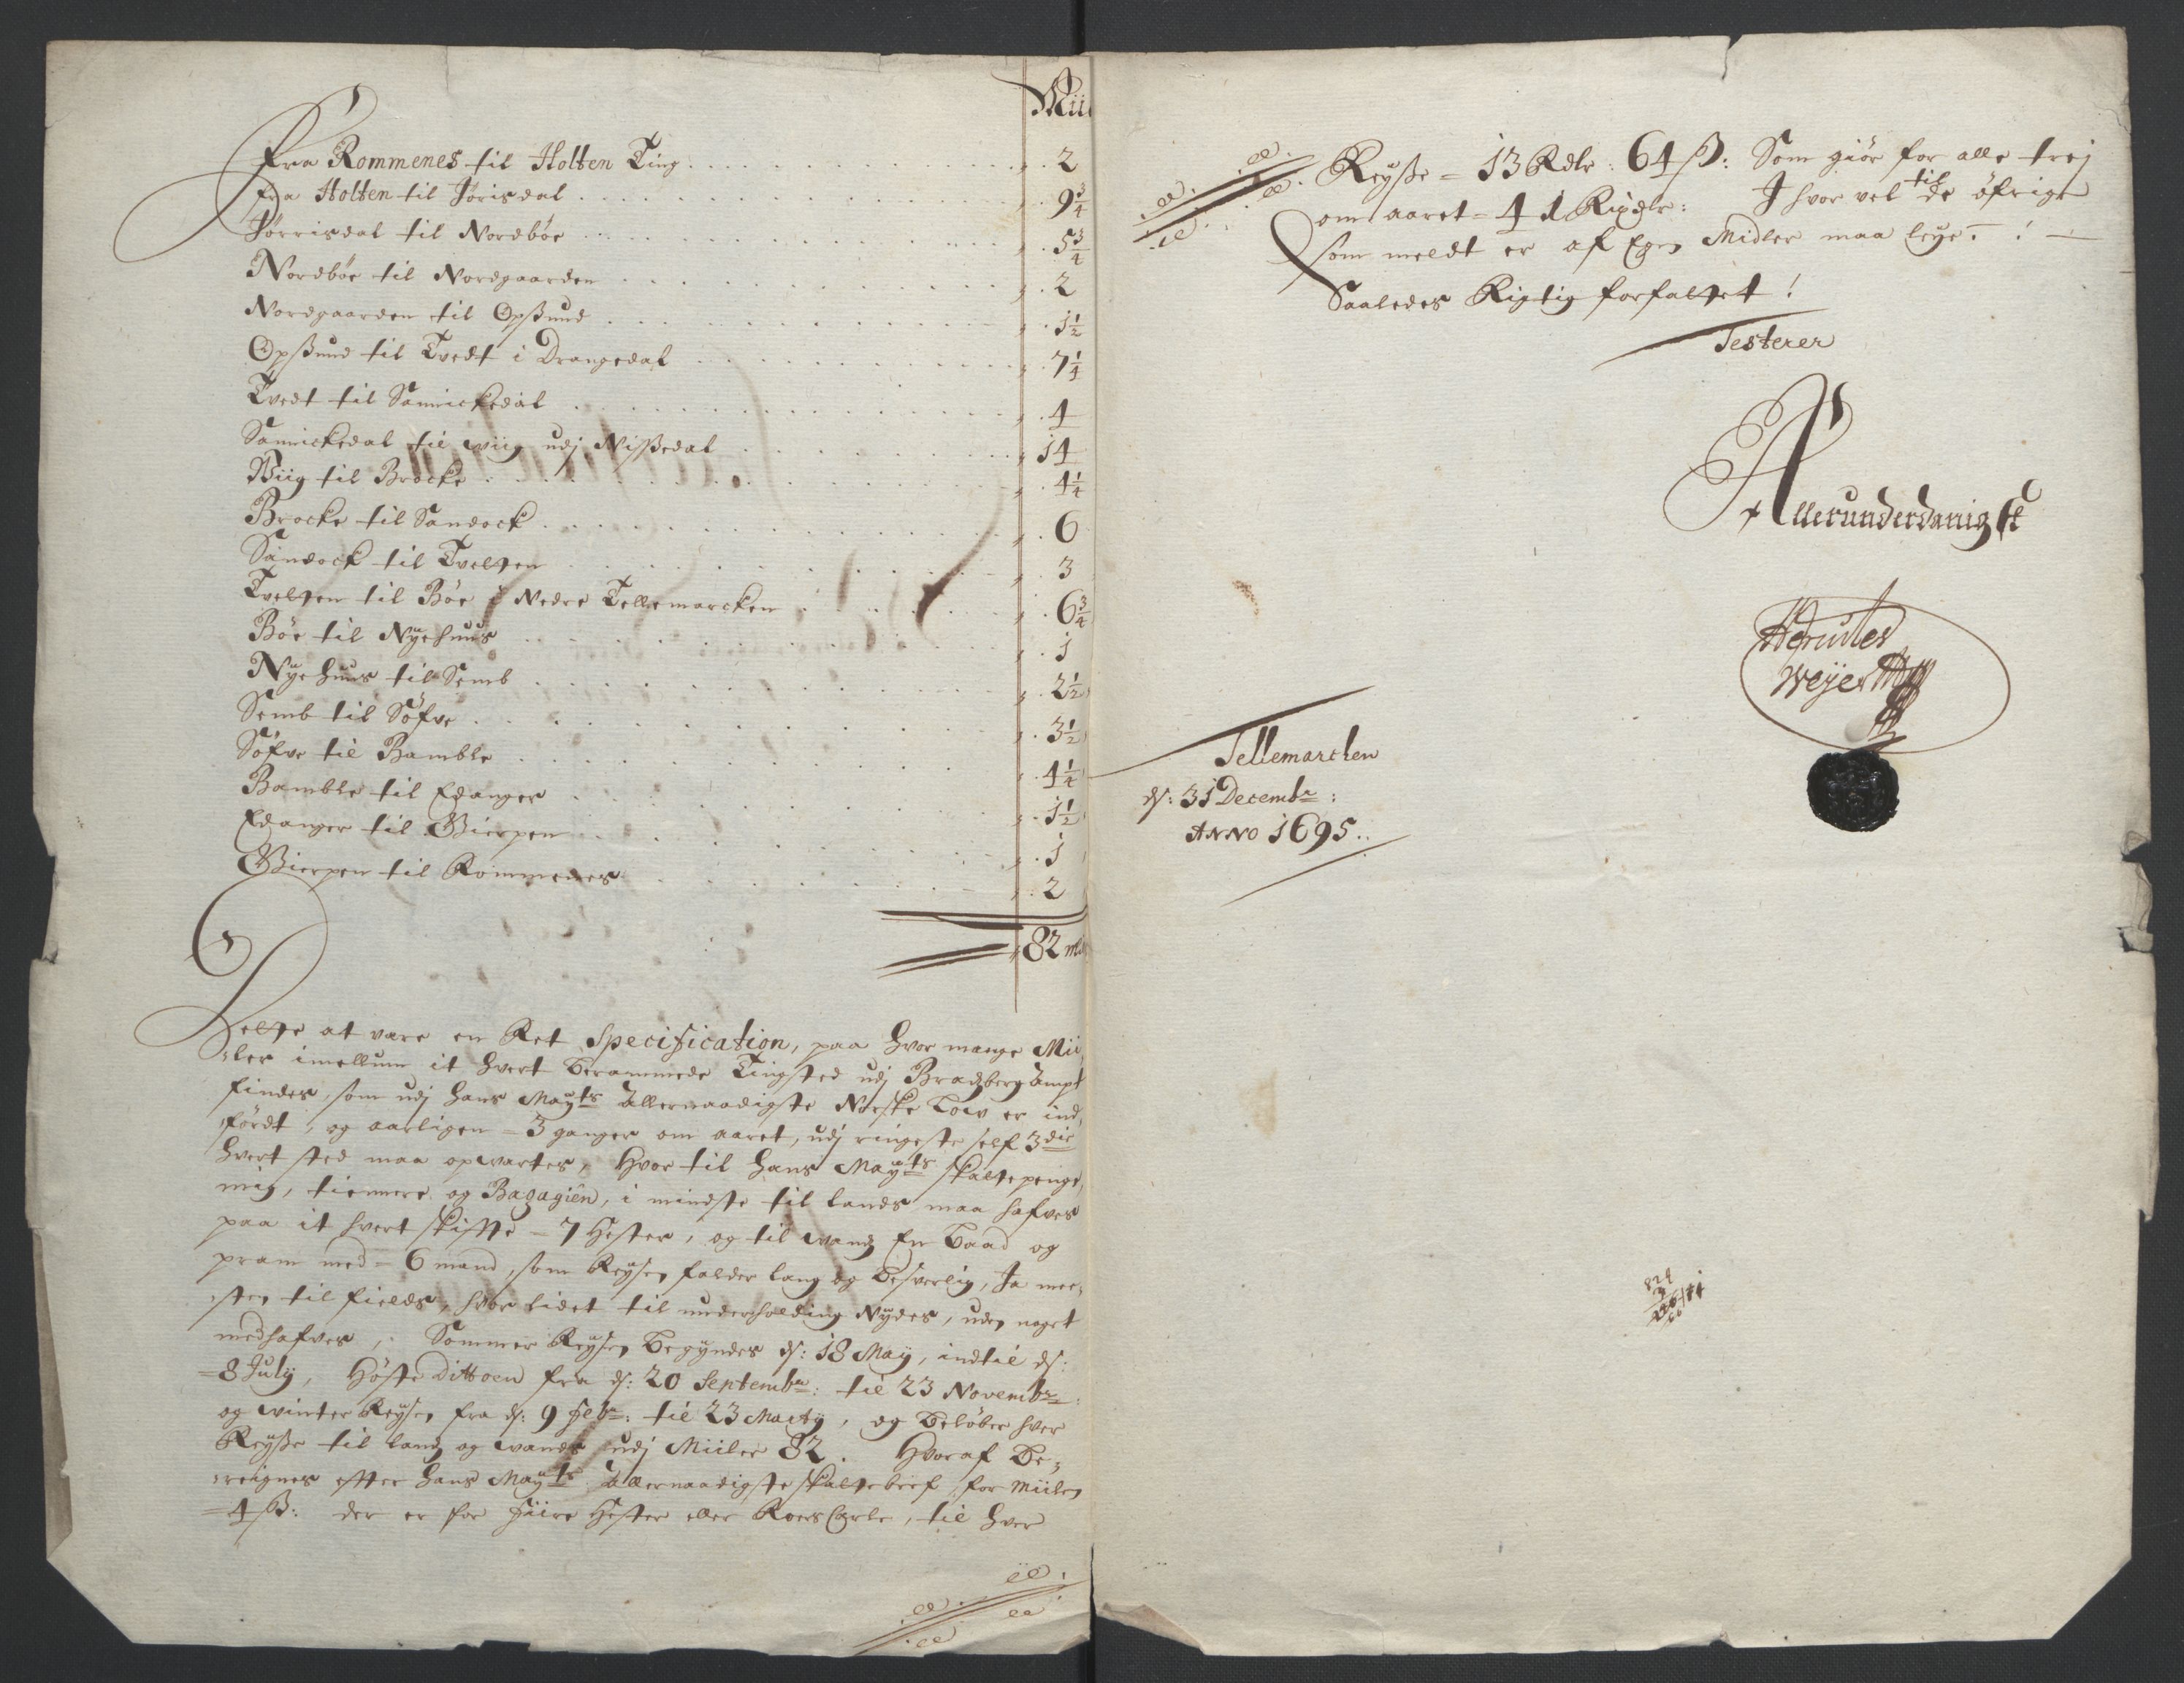 Miil
Fra Rommenes til Holten Ting . . . 2
fra Holten til Jørisdal . . . 9 3/4
Jørrisdal til Nordbøe . . . 5 3/4
Nordbøe til Nordgaarden . . . 2
Nordgaarden til Opßund . . . 1 1/2
Opßund til Tvedt i Drangedal . . . 7 1/4
Tvedt til Sannickedal . . . 4
Sannickedal til wiig udj Nißedal . . . 14
Wiig til Brocke . . . 4 1/4
Brocke til Sandock . . . 6
Sandock til Tvelten . . . 3
Tvelten til Bøe i Nedre Tellemarcken . . . 6 3/4
Bøe til Nyehuus . . . 1
Nyehuus til Semb . . . 2 1/2
Semb til Søfve . . . 3 1/2
Søfve til Bamble . . . 4 1/4
Bamble til Edanger . . . 1 1/2
Edanger til Gierpen . . . 1
Gierpen til Rommenes . . . 2
82 mil
at være en Ret Specification, paa hvor mange Mii,
,ler imellum it hvert berammede Tingsted udj Bradsberg ampt
findes, som udj hans Mayts allernaadigste Norske Low er ind,
,førdt, og aarligen = 3 ganger om aaret, udj ringeste self 3die
hvert sted maa opwartes, hvor til hans Mayts skatte penge,
mig, tiennere og Bagagien, i mindste til lands maa hafves
paa it hvert skifte = 7 hester, og til wands En baad og
pram med = 6 mand, som Reysen falder lang og besverlig, Ja mee,
,sten til fields, hvor lidet til underholding Nydes, uden noget
medhafves, Sommer Reysen begyndes ds: 18 May, indtil ds:
= 8 July, Høste dittoen fra ds: 20 Septembr: til 23 Novembr:
og winter Reysen fra ds: 9 Febr: til 23 Marty, og beløber hver
Reyße til lands og wands udj Miiler 82. Hvoraf be,
,reignes efter hans Mayts allernaadigste skatte bref, for Miilen
= 4 ß: der er for fiire hester eller Roers Carle, til hver
Reyße = 13 Rdlr: 64 ß: Som giør for alle trej
om aaret = 41 Rixdlr: J hvor vel til de øfrige
som meldt er af Egen Midler maa leye
Saaledes Rigtig forfattet!
Testerer
Allerunderdanigst
Hercules
Weyer
Tellemarchen
ds: 31 Decembr:
Anno 1695.